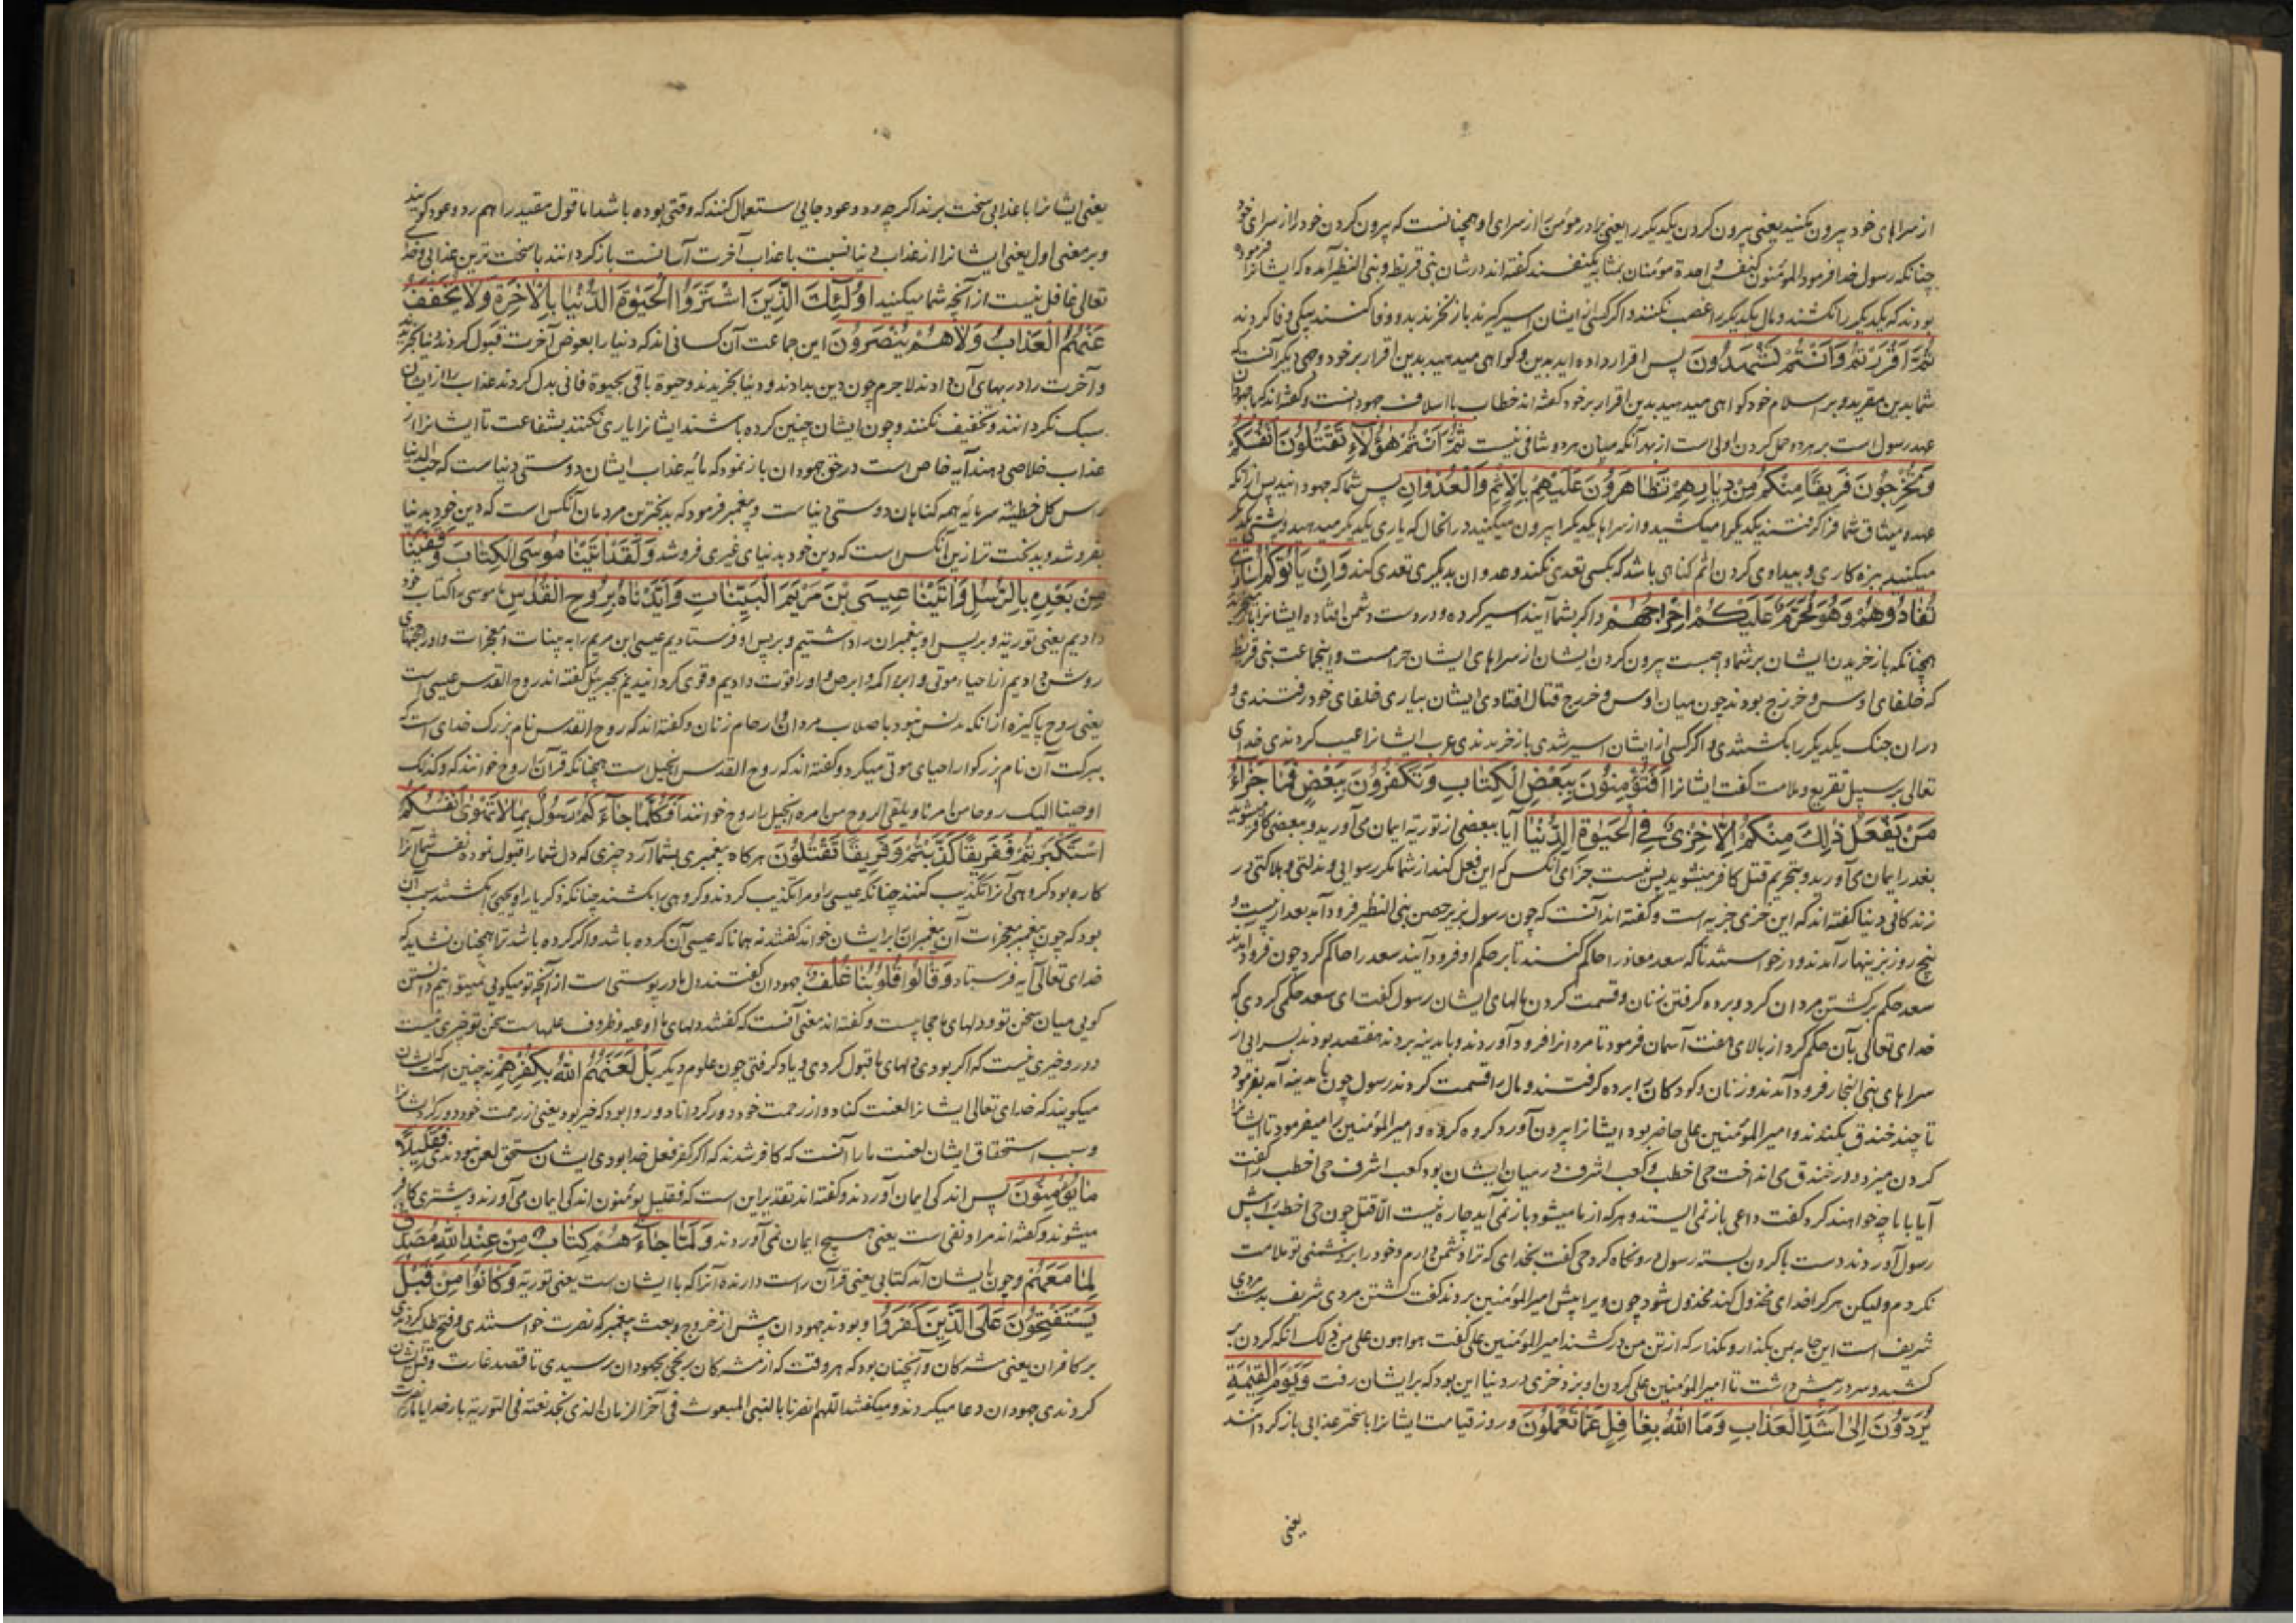 از سراهای خود بیرون مکنید یعنی بیرون کردن یکدیگر را یعنی برادر مؤمن از سرای او همچنانست که بیرون کردن خود را از سرای خود
چنانکه رسول خدا فرمود المؤمنون کنفس واحدة مومنان بمثابه یکنفسند گفته‌اند در شان بنی قریظه و بنی النظیر آمده که ایشانرا فرموده
بودند که یکدیگر را نکشند و مال یکدیگر را غصب نکنند و اگر کسی از ایشان اسیر گیرند باز خرند بدو وفا کنند بیکی وفا کردند
ثُمَّ اَقْرَرْتُمْ وَاَنْتُمْ تَشْهَدُونَ پس اقرار داده‌اید بدین و گواهی میدهید بدین اقرار بر خود و وجهی دیگر آنست که
شما بدین مقرید و بر اسلام خود گواهی میدهید بدین اقرار بر خود گفته‌اند خطاب با اسلاف جهودانست و گفته‌اند که با جهودان
عهد رسول است بر هر دو حمل کردن اولی است از بهر آنکه میان هر دو تنافی نیست ثُمَّ اَنْتُمْ هٰؤُلَاءِ تَقْتُلُونَ اَنْفُسَكُمْ
وَتُخْرِجُونَ فَرِيقًا مِنْكُمْ مِنْ دِيَارِهِمْ تَظَاهَرُونَ عَلَيْهِمْ بِالْاِثْمِ وَالْعُدْوَانِ پس شما که جهودانید پس از آنکه
عهد و میثاق شما فرا گرفتند یکدیگر را میکشید و از سراها یکدیگر را بیرون میکنید در آنحال که یاری یکدیگر میدهید و پشتی یکدیگر
میکنید ببزه کاری و بیدادی کردن اثم گناهی باشد که بکسی تعدی نکند و عدوان بدیگری تعدی کند وَاِنْ يَأْتُوكُمْ اُسَارٰى
تُفَادُوهُمْ وَهُوَ مُحَرَّمٌ عَلَيْكُمْ اِخْرَاجُهُمْ و اگر بشما آیند اسیر کرده و در دست دشمن افتاده ایشانرا باز
همچنانکه باز خریدن ایشان بر شما واجبست بیرون کردن ایشان از سراهای ایشان حرامست و اینجماعت بنی قریظه
که خلفای اوس و خزرج بودند چون میان اوس و خزرج قتال افتادی ایشان بیاری خلفای خود رفتندی و
در آن جنگ یکدیگر را بکشتندی و اگر کسی از ایشان اسیر شدی باز خریدندی عرب ایشانرا عیب کردندی خدای
تعالی بر سبیل تقریع و ملامت گفت ایشانرا اَفَتُؤْمِنُونَ بِبَعْضِ الْكِتَابِ وَتَكْفُرُونَ بِبَعْضٍ فَمَا جَزَاءُ
مَنْ يَفْعَلُ ذٰلِكَ مِنْكُمْ اِلَّا خِزْيٌ فِي الْحَيٰوةِ الدُّنْيَا آیا ببعضی از توریة ایمان می‌آورید و ببعضی کافر میشوید
بفدا ایمان می‌آورید و بتحریم قتل کافر میشوید پس نیست جزای آنکس که این فعل کند از شما مگر رسوایی و مذلتی و هلاکتی در
زندگانی دنیا گفته‌اند که این خزی جزیه است و گفته‌اند آنست که چون رسول بزیر حصن بنی النظیر فرود آمد بعد از بیست و
پنج روز بزینهار آمدند و درخواستند تا که سعد معاذ را حاکم کنند تا بر حکم او فرود آیند سعد را حاکم کرد چون فرود آمدند
سعد حکم بر کشتن مردان کرد و برده گرفتن زنان و قسمت کردن مالهای ایشان رسول گفت ای سعد حکمی کردی که
خدای تعالی بآن حکم کرد از بالای هفت آسمان فرمود تا مردانرا فرود آوردند و بمدینه بردند هفتصد بودند بسرایی از
سراهای بنی النجار فرود آمدند و زنان و کودکانرا برده گرفتند و مالها قسمت کردند رسول چون بمدینه آمد بفرمود
تا چند خندق بکندند و امیر المؤمنین علی حاضر بود ایشانرا بیرون آورد گروه گروه و امیر المؤمنین را میفرمود تا ایشانرا
گردن میزد و در خندق می‌انداخت حی اخطب و کعب اشرف در میان ایشان بود کعب اشرف حی اخطب را گفت
آیا با ما چه خواهند کرد گفت داعی باز نمی‌ایستد و هر که از ما میشود باز نمی‌آید چاره نیست الا قتل چون حی اخطب پیش
رسول آوردند دست با گردن بسته رسول در و نگاه کرد حی گفت بخدای که ترا دشمن دارم و خود را بر دشمنی تو ملامت
نکردم ولیکن هر کرا خدای مخذول کند مخذول شود چون ویرا پیش امیر المؤمنین بردند گفت کشتن مردی شریف بدست مردی
شریف است این جامه بمن بگذار و مگذار که از تن من درکشند امیر المؤمنین علی گفت هو اهون علی من ذلک آنکه گردن
کشید و سر در پیش داشت تا امیر المؤمنین علی گردن او بزد و خزی در دنیا این بود که بر ایشان رفت وَيَوْمَ الْقِيٰمَةِ
يُرَدُّونَ اِلٰى اَشَدِّ الْعَذَابِ وَمَا اللّٰهُ بِغَافِلٍ عَمَّا تَعْمَلُونَ و روز قیامت ایشانرا با سختر عذابی باز گردانند
یعنی
یعنی ایشانرا با عذابی سخت برند اگر چه رد و عود جایی استعمال کنند که وقتی بوده باشد اما قول مقید را هم رد و عود گویند
و بر معنی اول یعنی ایشانرا از عذاب دنیا نسبت با عذاب آخرت آسانست باز گردانند با سخت ترین عذابی و خدای
تعالی غافل نیست از آنچه شما میکنید اُولٰئِكَ الَّذِينَ اشْتَرَوُا الْحَيٰوةَ الدُّنْيَا بِالْاٰخِرَةِ وَلَا يُخَفَّفُ
عَنْهُمُ الْعَذَابُ وَلَا هُمْ يُنْصَرُونَ این جماعت آن کسانی‌اند که دنیا را بعوض آخرت قبول کردند و دنیا بخریدند
و آخرت را در بهای آن دادند لاجرم چون دین بدادند و دنیا بخریدند و حیوة باقی بحیوة فانی بدل کردند عذاب را از ایشان
سبک نگردانند و تخفیف نکنند و چون ایشان چنین کرده باشند ایشانرا یاری نکنند بشفاعت تا ایشانرا از
عذاب خلاصی دهند آیه خاص است در حق جهودان باز نمود که مایه عذاب ایشان دوستی دنیاست که حب الدنیا
راس کل خطیئة سرمایه همه گناهان دوستی دنیاست و پیغمبر فرمود که بدبخترین مردمان آنکس است که دین خود بدنیا
بفروشد و بدبخت تر ازین آنکس است که دین خود بدنیای غیری فروشد وَلَقَدْ اٰتَيْنَا مُوسَى الْكِتَابَ وَقَفَّيْنَا
مِنْ بَعْدِهِ بِالرُّسُلِ وَاٰتَيْنَا عِيسَى بْنَ مَرْيَمَ الْبَيِّنَاتِ وَاَيَّدْنَاهُ بِرُوحِ الْقُدُسِ ما موسی را کتاب خود
دادیم یعنی توریة و بر پس او پیغمبران را داشتیم و بر پس او فرستادیم عیسی ابن مریم را به بینات و معجزات و او را حجتهای
روشن دادیم از احیاء موتی و ابراء اکمه و ابرص و او را قوت دادیم و قوی گردانیدیم بجبرئیل گفته‌اند روح القدس عیسی است
یعنی روح پاکیزه از آنکه مدنس نبود باصلاب مردان و ارحام زنان و گفته‌اند که روح القدس نام بزرگ خدای است که
ببرکت آن نام بزرگوار احیای موتی میکرد و گفته‌اند که روح القدس انجیل است همچنانکه قرآن را روح خوانند که و کذلک
اوحینا الیک روحا من امرنا و یلقی الروح من امره انجیل را روح خوانند اَفَكُلَّمَا جَاءَكُمْ رَسُولٌ بِمَا لَا تَهْوٰى اَنْفُسُكُمُ
اسْتَكْبَرْتُمْ فَفَرِيقًا كَذَّبْتُمْ وَفَرِيقًا تَقْتُلُونَ هر گاه پیغمبری بشما آرد چیزی که دل شما را قبول نبوده نفس شما آنرا
کاره بود گروهی آنرا تکذیب کنند چنانکه عیسی را و مرا تکذیب کردند و گروهی را بکشند چنانکه زکریا را و یحیی را بکشتند سبب آن
بود که چون پیغمبر معجزات آن پیغمبران را بر ایشان خواند گفتند نه همانا که عیسی آن کرده باشد و اگر کرده باشد ترا همچنان نشاید که
خدای تعالی آیه فرستاد وَقَالُوا قُلُوبُنَا غُلْفٌ جهودان گفتند دل ما در پوستی است از آنچه تو میگویی نمیتوانیم دانستن
گویی میان سخن تو و دلهای ما حجابیست و گفته‌اند معنی آنست که گفتند دلهای ما اوعیه و ظروف علمهاست سخن تو چیزی نیست
در و خیری نیست که اگر بودی دلهای ما قبول کردی و یاد گرفتی چون علوم دیگر بَلْ لَعَنَهُمُ اللّٰهُ بِكُفْرِهِمْ نه چنین است که ایشان
میگویند که خدای تعالی ایشانرا لعنت کناد و از رحمت خود دور گرداناد و روا بود که خبر بود یعنی از رحمت خود دور کرد ایشانرا
و سبب استحقاق ایشان لعنت ما را آنست که کافر شدند که اگر کفر فعل خدا بودی ایشان مستحق لعن نبودندی فَقَلِيلًا
مَا يُؤْمِنُونَ پس اندکی ایمان آوردند و گفته‌اند تقدیر این است که فبقلیل یومنون اندکی ایمان می‌آورند و بیشتری کافر
میشوند و گفته‌اند مراد نفی است یعنی هیچ ایمان نمی‌آوردند وَلَمَّا جَاءَهُمْ كِتَابٌ مِنْ عِنْدِ اللّٰهِ مُصَدِّقٌ
لِمَا مَعَهُمْ و چون بایشان آمد کتابی یعنی قرآن راست دارنده آنرا که با ایشان است یعنی توریة وَكَانُوا مِنْ قَبْلُ
يَسْتَفْتِحُونَ عَلَى الَّذِينَ كَفَرُوا و بودند جهودان پیش از خروج و بعث پیغمبر که نصرت خواستندی و فتح طلب کردندی
بر کافران یعنی مشرکان و آنچنان بود که هر وقت که از مشرکان رنجی بجهودان رسیدی تا قصد غارت و قتل ایشان
کردندی جهودان دعا میکردند و میگفتند اللهم انصرنا بالنبی المبعوث فی آخر الزمان الذی نجد نعته فی التوریة بار خدایا ما را نصرت